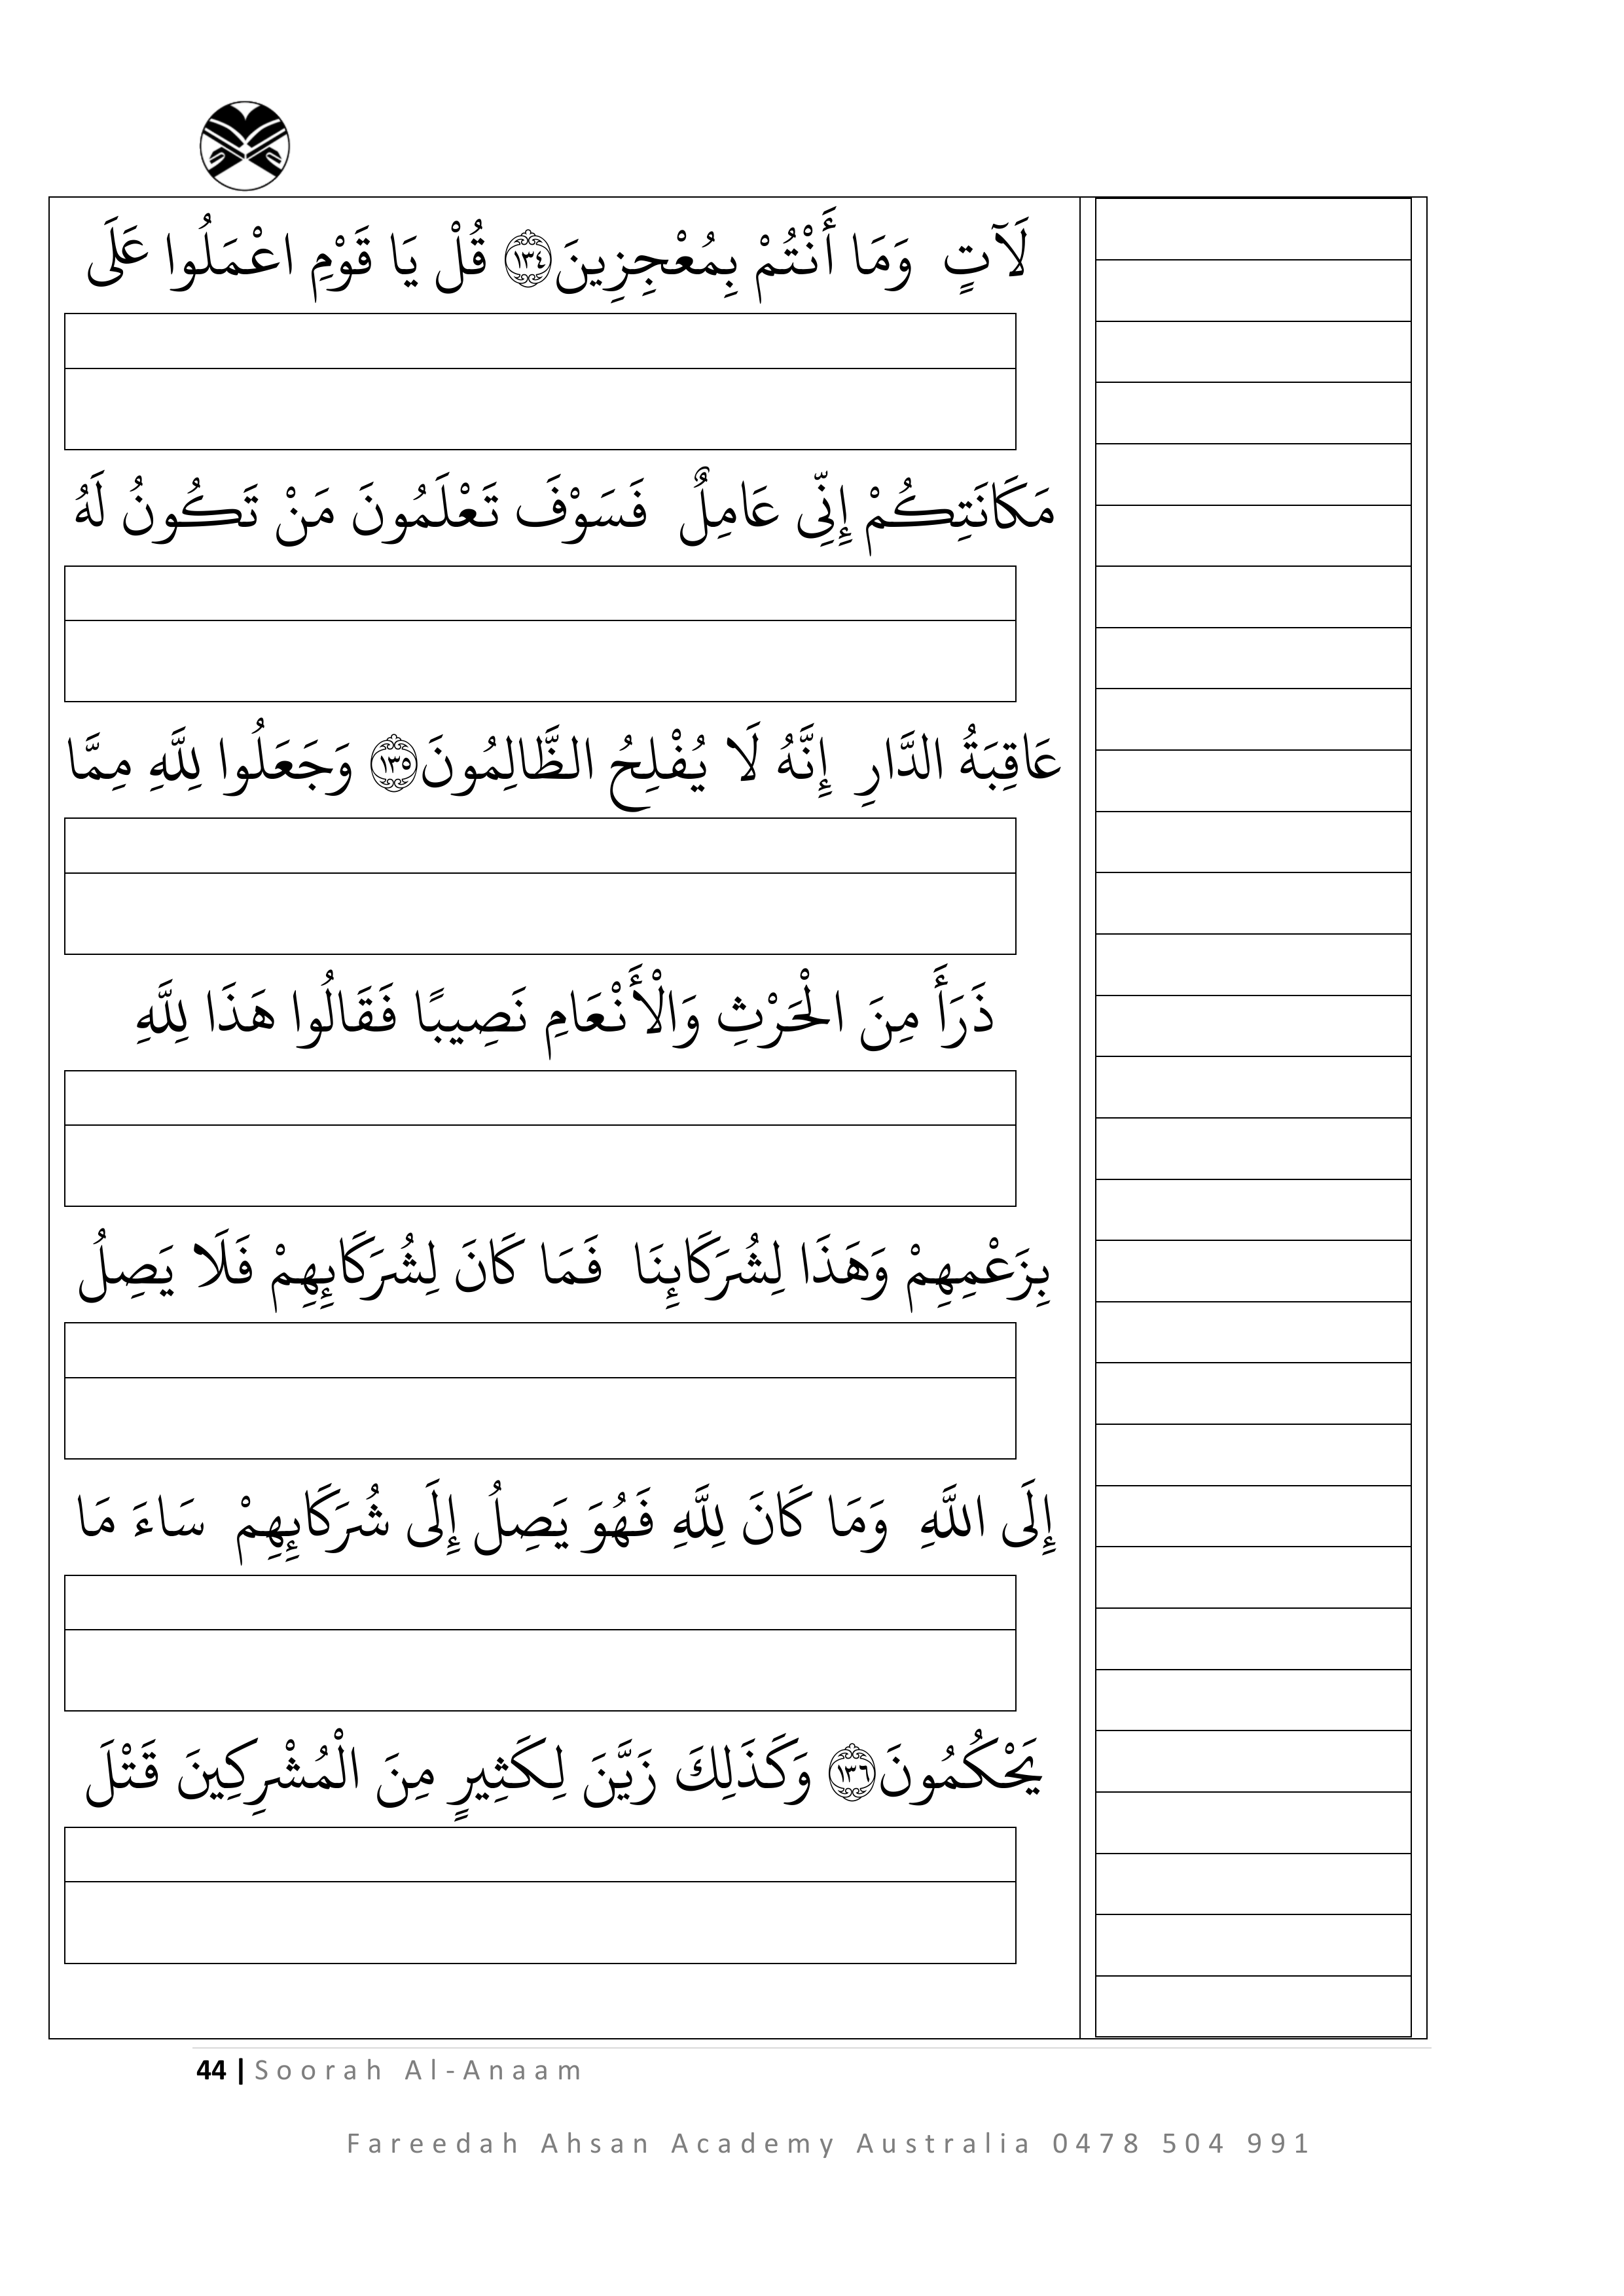 لَآتٍ وَمَا أَنْتُمْ بِمُعْجِزِينَ ﴿١٣٤﴾ قُلْ يَا قَوْمِ اعْمَلُوا عَلَى
مَكَانَتِكُمْ إِنِّي عَامِلٌ فَسَوْفَ تَعْلَمُونَ مَنْ تَكُونُ لَهُ
عَاقِبَةُ الدَّارِ إِنَّهُ لَا يُفْلِحُ الظَّالِمُونَ ﴿١٣٥﴾ وَجَعَلُوا لِلَّهِ مِمَّا
ذَرَأَ مِنَ الْحَرْثِ وَالْأَنْعَامِ نَصِيبًا فَقَالُوا هَذَا لِلَّهِ
بِزَعْمِهِمْ وَهَذَا لِشُرَكَائِنَا فَمَا كَانَ لِشُرَكَائِهِمْ فَلَا يَصِلُ
إِلَى اللَّهِ وَمَا كَانَ لِلَّهِ فَهُوَ يَصِلُ إِلَى شُرَكَائِهِمْ سَاءَ مَا
يَحْكُمُونَ ﴿١٣٦﴾ وَكَذَلِكَ زَيَّنَ لِكَثِيرٍ مِنَ الْمُشْرِكِينَ قَتْلَ
44 | Soorah Al-Anaam
Fareedah Ahsan Academy Australia 0478 504 991